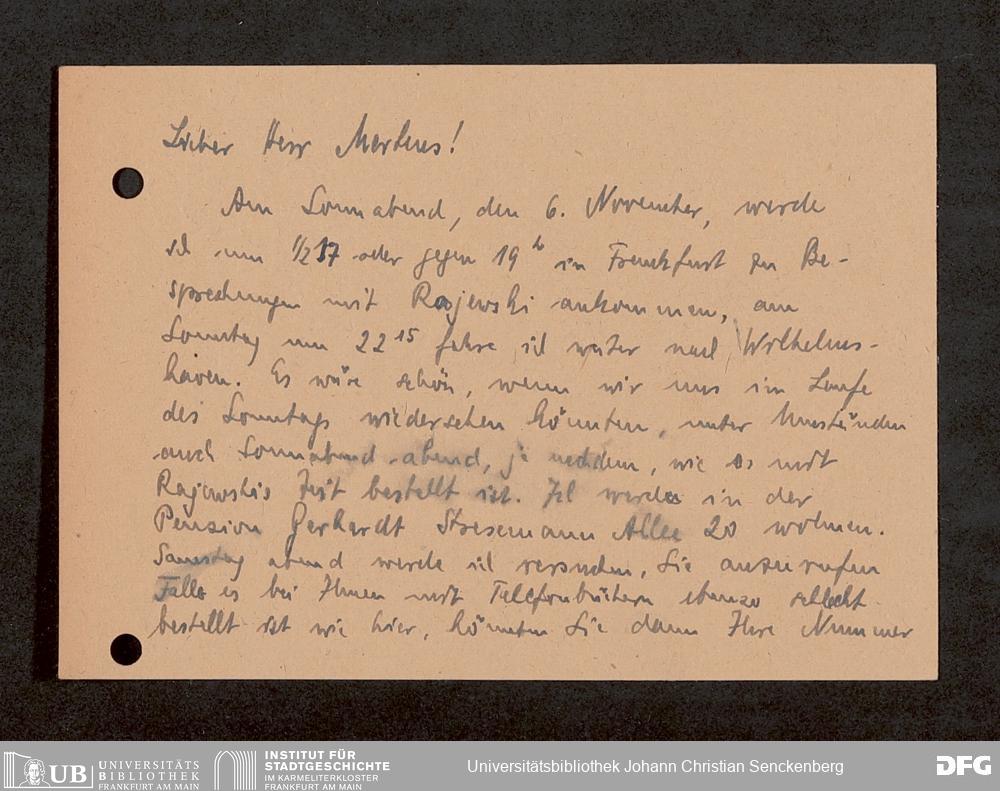 Lieber Herr Mertens!
Am Sonnabend, den 6. November, werde
ich um 1/2 17 oder gegen 19 h in Frankfurt zu Be-
sprechungen mit Rajewski ankommen, am
Sonntag um 22 15 fahre ich weiter nach Wilhelms-
haven. Es wäre schön, wenn wir uns im Laufe
des Sonntags wiedersehen könnten, unter Umständen
auch Sonnabend-abend, je nachdem, wie es mit
Rajewskis Zeit bestellt ist. Ich werde in der
Pension Gerhardt Stresemann Allee 20 wohnen.
Samstag abend werde ich versuchen, Sie anzurufen
Falls es bei Ihnen mit Telefonbüchern ebenso schlecht
bestellt ist wie hier, könnten Sie dann Ihre Nummer
UB UNIVERSITÄTS
BIBLIOTHEK
FRANKFURT AM MAIN
INSTITUT FÜR
STADTGESCHICHTE
IM KARMELITERKLOSTER
FRANKFURT AM MAIN
Universitätsbibliothek Johann Christian Senckenberg
DFG